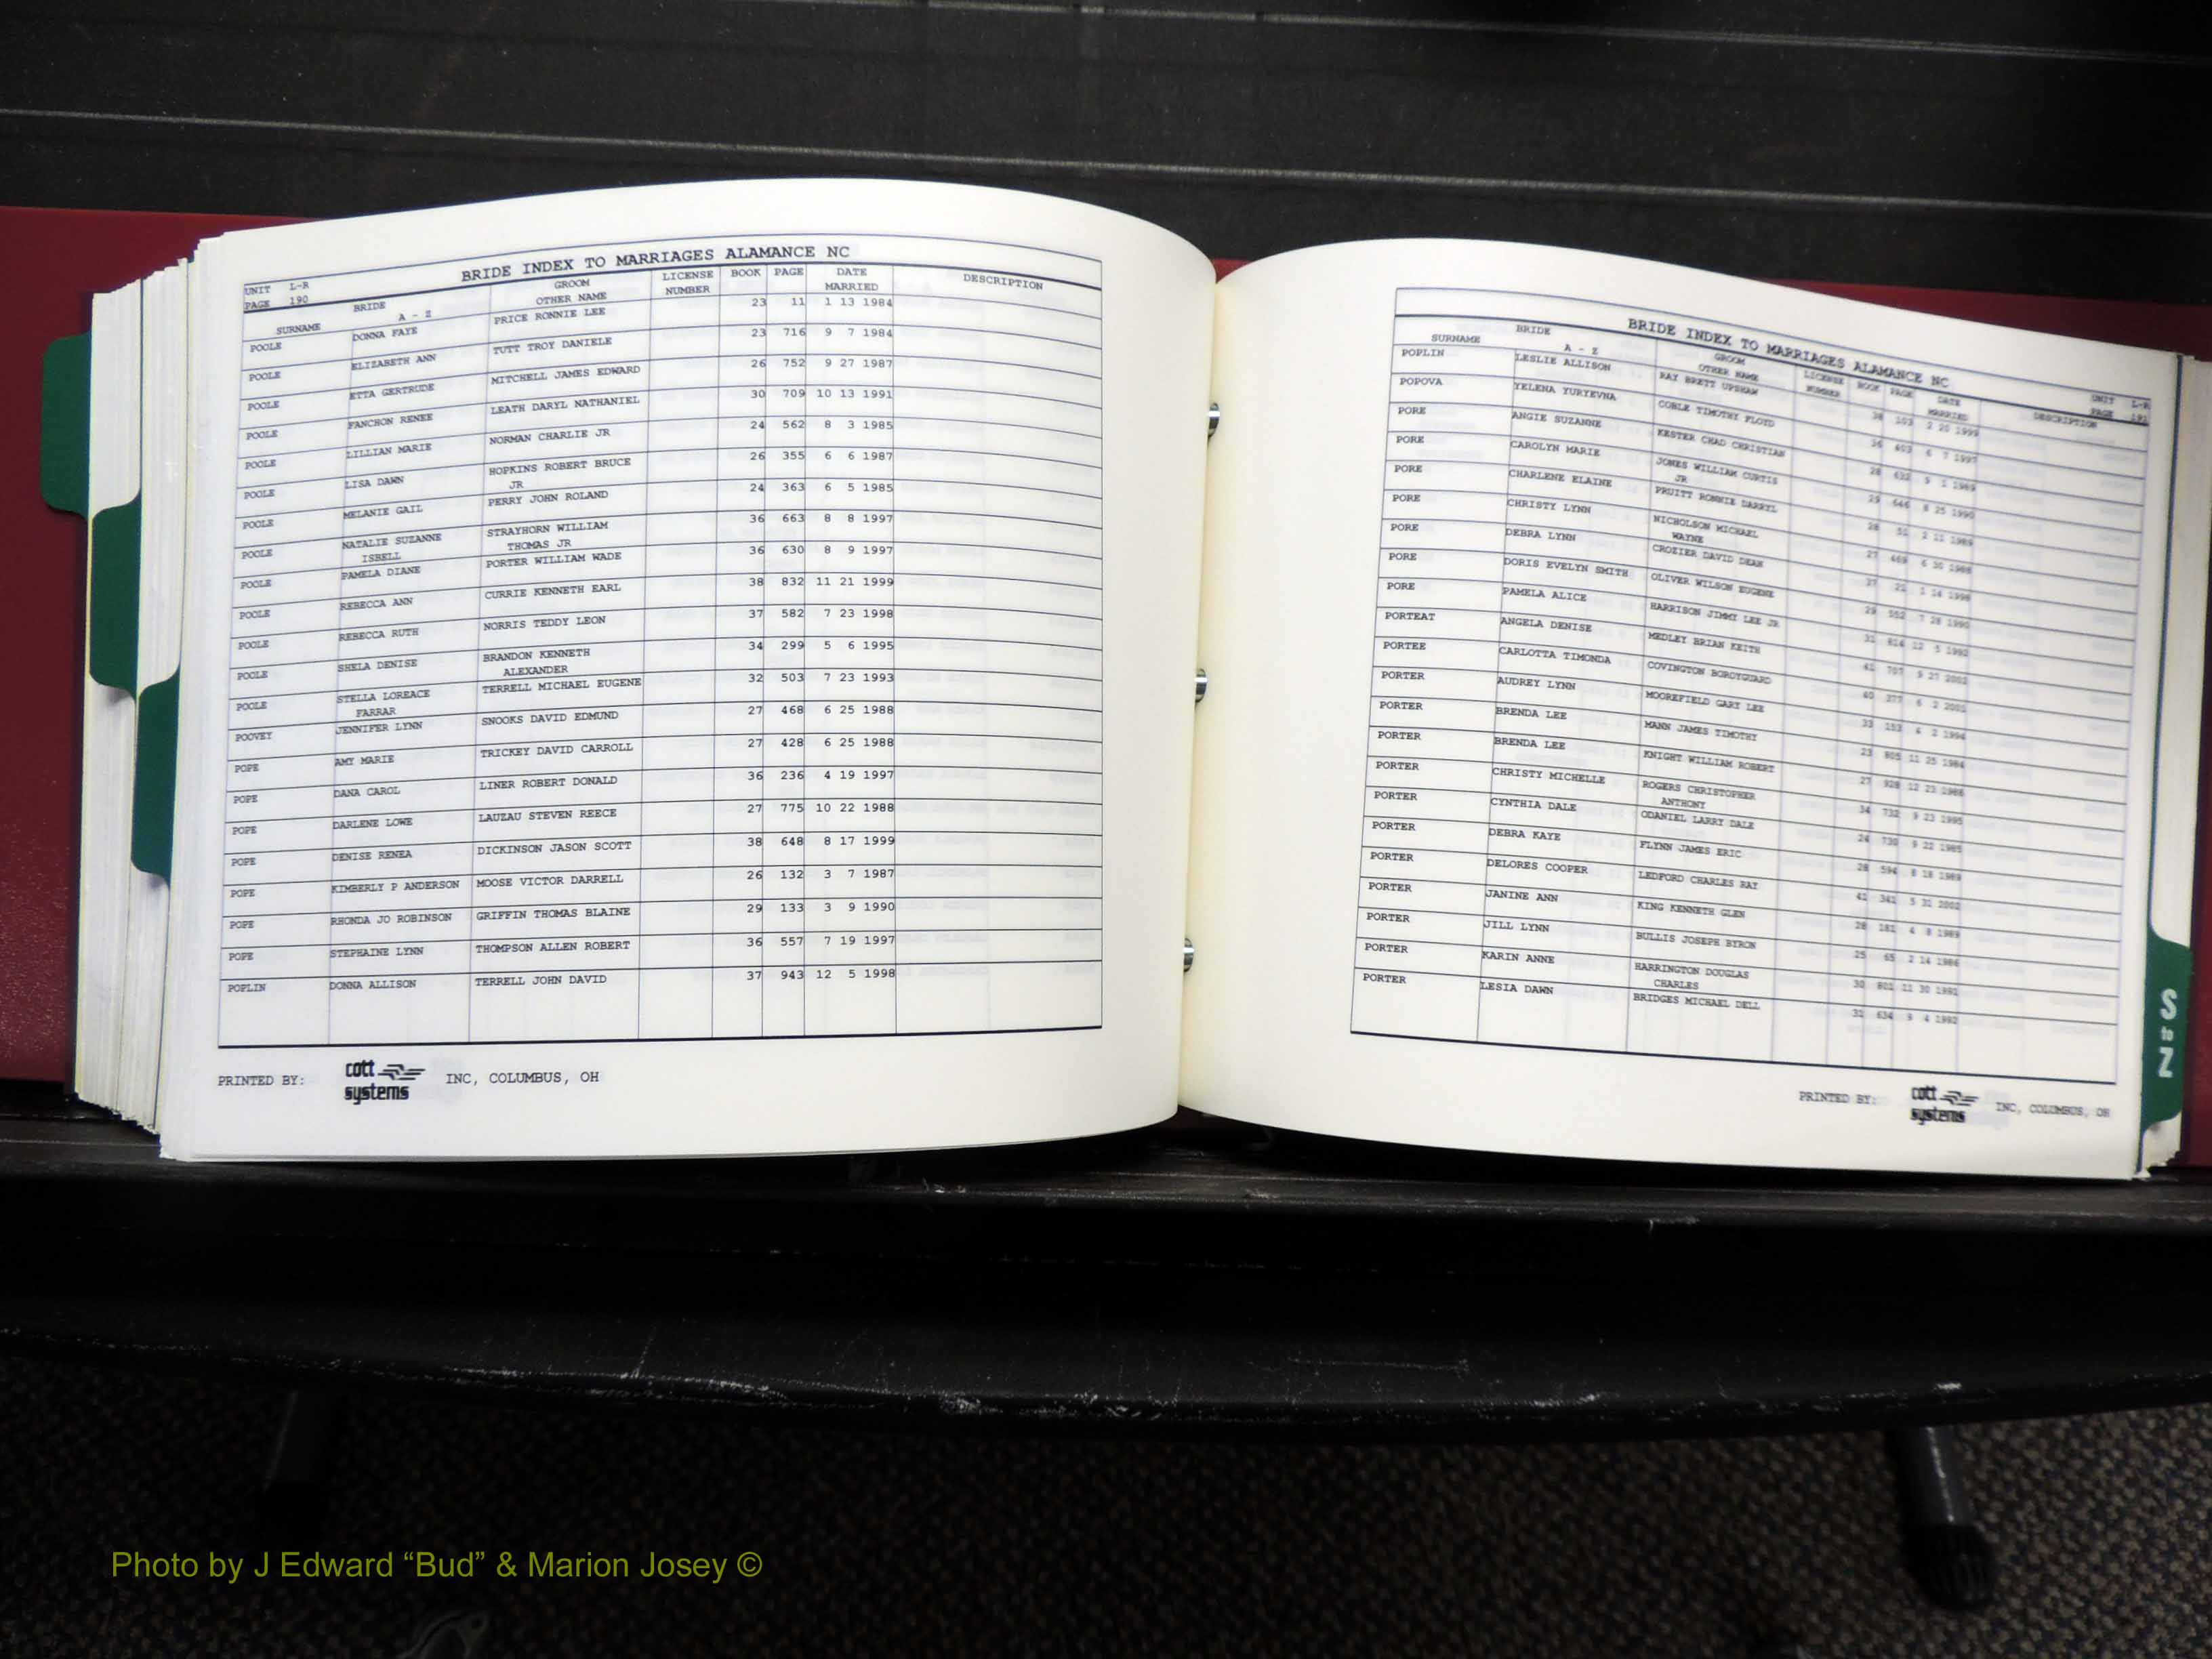 BRIDE INDEX TO MARRIAGES ALAMANCE NC
UNIT L-R
PAGE 190
SURNAME BRIDE A - Z GROOM OTHER NAME LICENSE NUMBER BOOK PAGE DATE MARRIED DESCRIPTION
POOLE DONNA FAYE PRICE RONNIE LEE 23 11 1 13 1984
POOLE ELIZABETH ANN TUTT TROY DANIELE 23 716 9 7 1984
POOLE ETTA GERTRUDE MITCHELL JAMES EDWARD 26 752 9 27 1987
POOLE FANCHON RENEE LEATH DARYL NATHANIEL 30 709 10 13 1991
POOLE LILLIAN MARIE NORMAN CHARLIE JR 24 562 8 3 1985
POOLE LISA DAWN HOPKINS ROBERT BRUCE 26 355 6 6 1987
JR
POOLE MELANIE GAIL PERRY JOHN ROLAND 24 363 6 5 1985
POOLE NATALIE SUZANNE STRAYHORN WILLIAM 36 663 8 8 1997
ISBELL THOMAS JR
POOLE PAMELA DIANE PORTER WILLIAM WADE 36 630 8 9 1997
POOLE REBECCA ANN CURRIE KENNETH EARL 38 832 11 21 1999
POOLE REBECCA RUTH NORRIS TEDDY LEON 37 582 7 23 1998
POOLE SHELA DENISE BRANDON KENNETH 34 299 5 6 1995
ALEXANDER
POOLE STELLA LOREACE TERRELL MICHAEL EUGENE 32 503 7 23 1993
FARRAR
POOVEY JENNIFER LYNN SNOOKS DAVID EDMUND 27 468 6 25 1988
POPE AMY MARIE TRICKEY DAVID CARROLL 27 428 6 25 1988
POPE DANA CAROL LINER ROBERT DONALD 36 236 4 19 1997
POPE DARLENE LOWE LAUZAU STEVEN REECE 27 775 10 22 1988
POPE DENISE RENEA DICKINSON JASON SCOTT 38 648 8 17 1999
POPE KIMBERLY P ANDERSON MOOSE VICTOR DARRELL 26 132 3 7 1987
POPE RHONDA JO ROBINSON GRIFFIN THOMAS BLAINE 29 133 3 9 1990
POPE STEPHAINE LYNN THOMPSON ALLEN ROBERT 36 557 7 19 1997
POPLIN DONNA ALLISON TERRELL JOHN DAVID 37 943 12 5 1998
PRINTED BY: cott systems INC, COLUMBUS, OH
BRIDE INDEX TO MARRIAGES ALAMANCE NC
UNIT L-R
PAGE 191
SURNAME BRIDE A - Z GROOM OTHER NAME LICENSE NUMBER BOOK PAGE DATE MARRIED DESCRIPTION
POPLIN LESLIE ALLISON RAY BRETT UPSHAW 38 103 2 20 1999
POPOVA YELENA YURYEVNA COBLE TIMOTHY FLOYD 36 403 6 7 1997
PORE ANGIE SUZANNE KESTER CHAD CHRISTIAN 28 9 1 1989
PORE CAROLYN MARIE JONES WILLIAM CURTIS 29 646 8 25 1990
JR
PORE CHARLENE ELAINE PRUITT RONNIE DARRYL 28 2 11 1989
PORE CHRISTY LYNN NICHOLSON MICHAEL 27 469 6 30 1988
WAYNE
PORE DEBRA LYNN CROZIER DAVID DEAN 37 21 1 14 1998
PORE DORIS EVELYN SMITH OLIVER WILSON EUGENE 29 552 7 28 1990
PORE PAMELA ALICE HARRISON JIMMY LEE JR 31 814 12 5 1992
PORTEAT ANGELA DENISE MEDLEY BRIAN KEITH 41 707 9 27 2002
PORTEE CARLOTTA TIMONDA COVINGTON BORDYGUARD 40 377 6 2 2001
PORTER AUDREY LYNN MOOREFIELD GARY LEE 33 153 4 2 1994
PORTER BRENDA LEE MANN JAMES TIMOTHY 23 805 11 25 1984
PORTER BRENDA LEE KNIGHT WILLIAM ROBERT 27 928 12 23 1988
PORTER CHRISTY MICHELLE ROGERS CHRISTOPHER 34 732 9 23 1995
ANTHONY
PORTER CYNTHIA DALE ODANIEL LARRY DALE 24 730 9 22 1985
PORTER DEBRA KAYE FLYNN JAMES ERIC 28 594 8 18 1989
PORTER DELORES COOPER LEDFORD CHARLES RAY 41 341 5 31 2002
PORTER JANINE ANN KING KENNETH GLEN 28 181 4 8 1989
PORTER JILL LYNN BULLIS JOSEPH BYRON 25 65 2 14 1986
PORTER KARIN ANNE HARRINGTON DOUGLAS 30 801 11 30 1991
CHARLES
PORTER LESIA DAWN BRIDGES MICHAEL DELL 31 634 9 4 1992
PRINTED BY: cott systems INC, COLUMBUS, OH
S to Z
Photo by J Edward “Bud” & Marion Josey ©